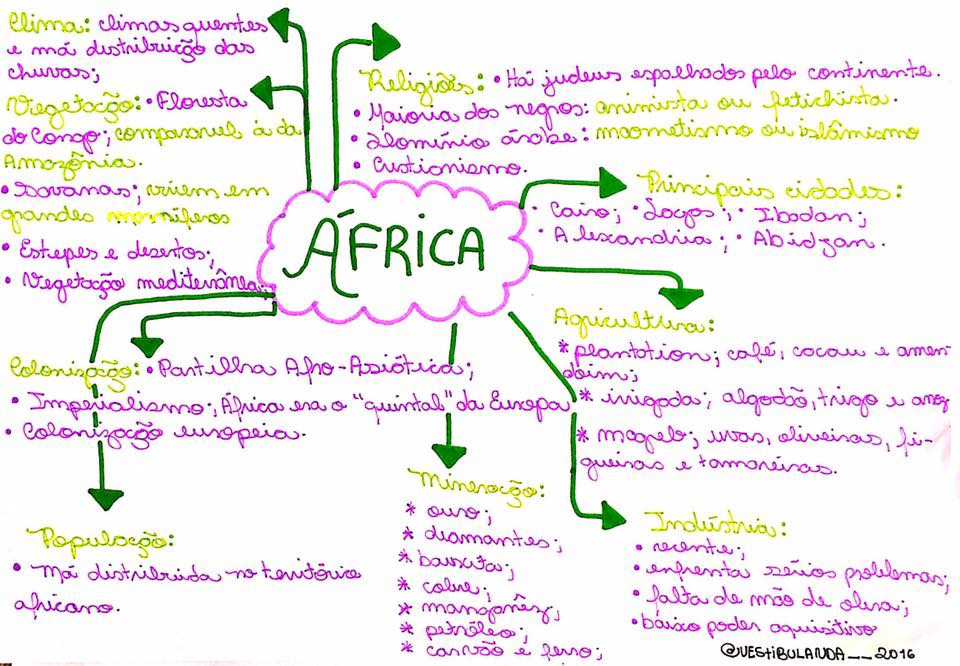 Clima: climas quentes
e má distribuição das
chuvas;
Vegetação: • Floresta
do Congo; comparavel á da
Amazônia.
• Savanas; vivem em
grandes mamíferos
• Estepes e desertos;
• Vegetação mediterrânea;
Religiões: • Há judeus espalhados pelo continente.
• Maioria dos negros: animista ou fetichista.
• Domínio árabe: maometismo ou islâmismo
• Cristionismo.
ÁFRICA
Principais cidades:
• Cairo; • Lagos; • Ibadan;
• Alexandria; • Abidjan.
Agricultura:
* plantation; café, cacau e amen-
doim;
* irrigada; algodão, trigo e arroz
* magreb; uvas, oliveiras, fi-
gueiras e tamareiras.
Colonização: • Partilha Afro-Asiática;
• Imperialismo; África era o "quintal" da Europa
• Colonização europeia.
População:
• Má distribuida no território
africano.
Mineração:
* ouro;
* diamantes;
* bauxita;
* cobre;
* manganêz;
* petróleo;
* carvão e ferro;
Indústria:
• recente;
• enfrenta sérios problemas;
• falta de mão de obra;
• baixo poder aquisitivo
@VESTIBULANDA__2016